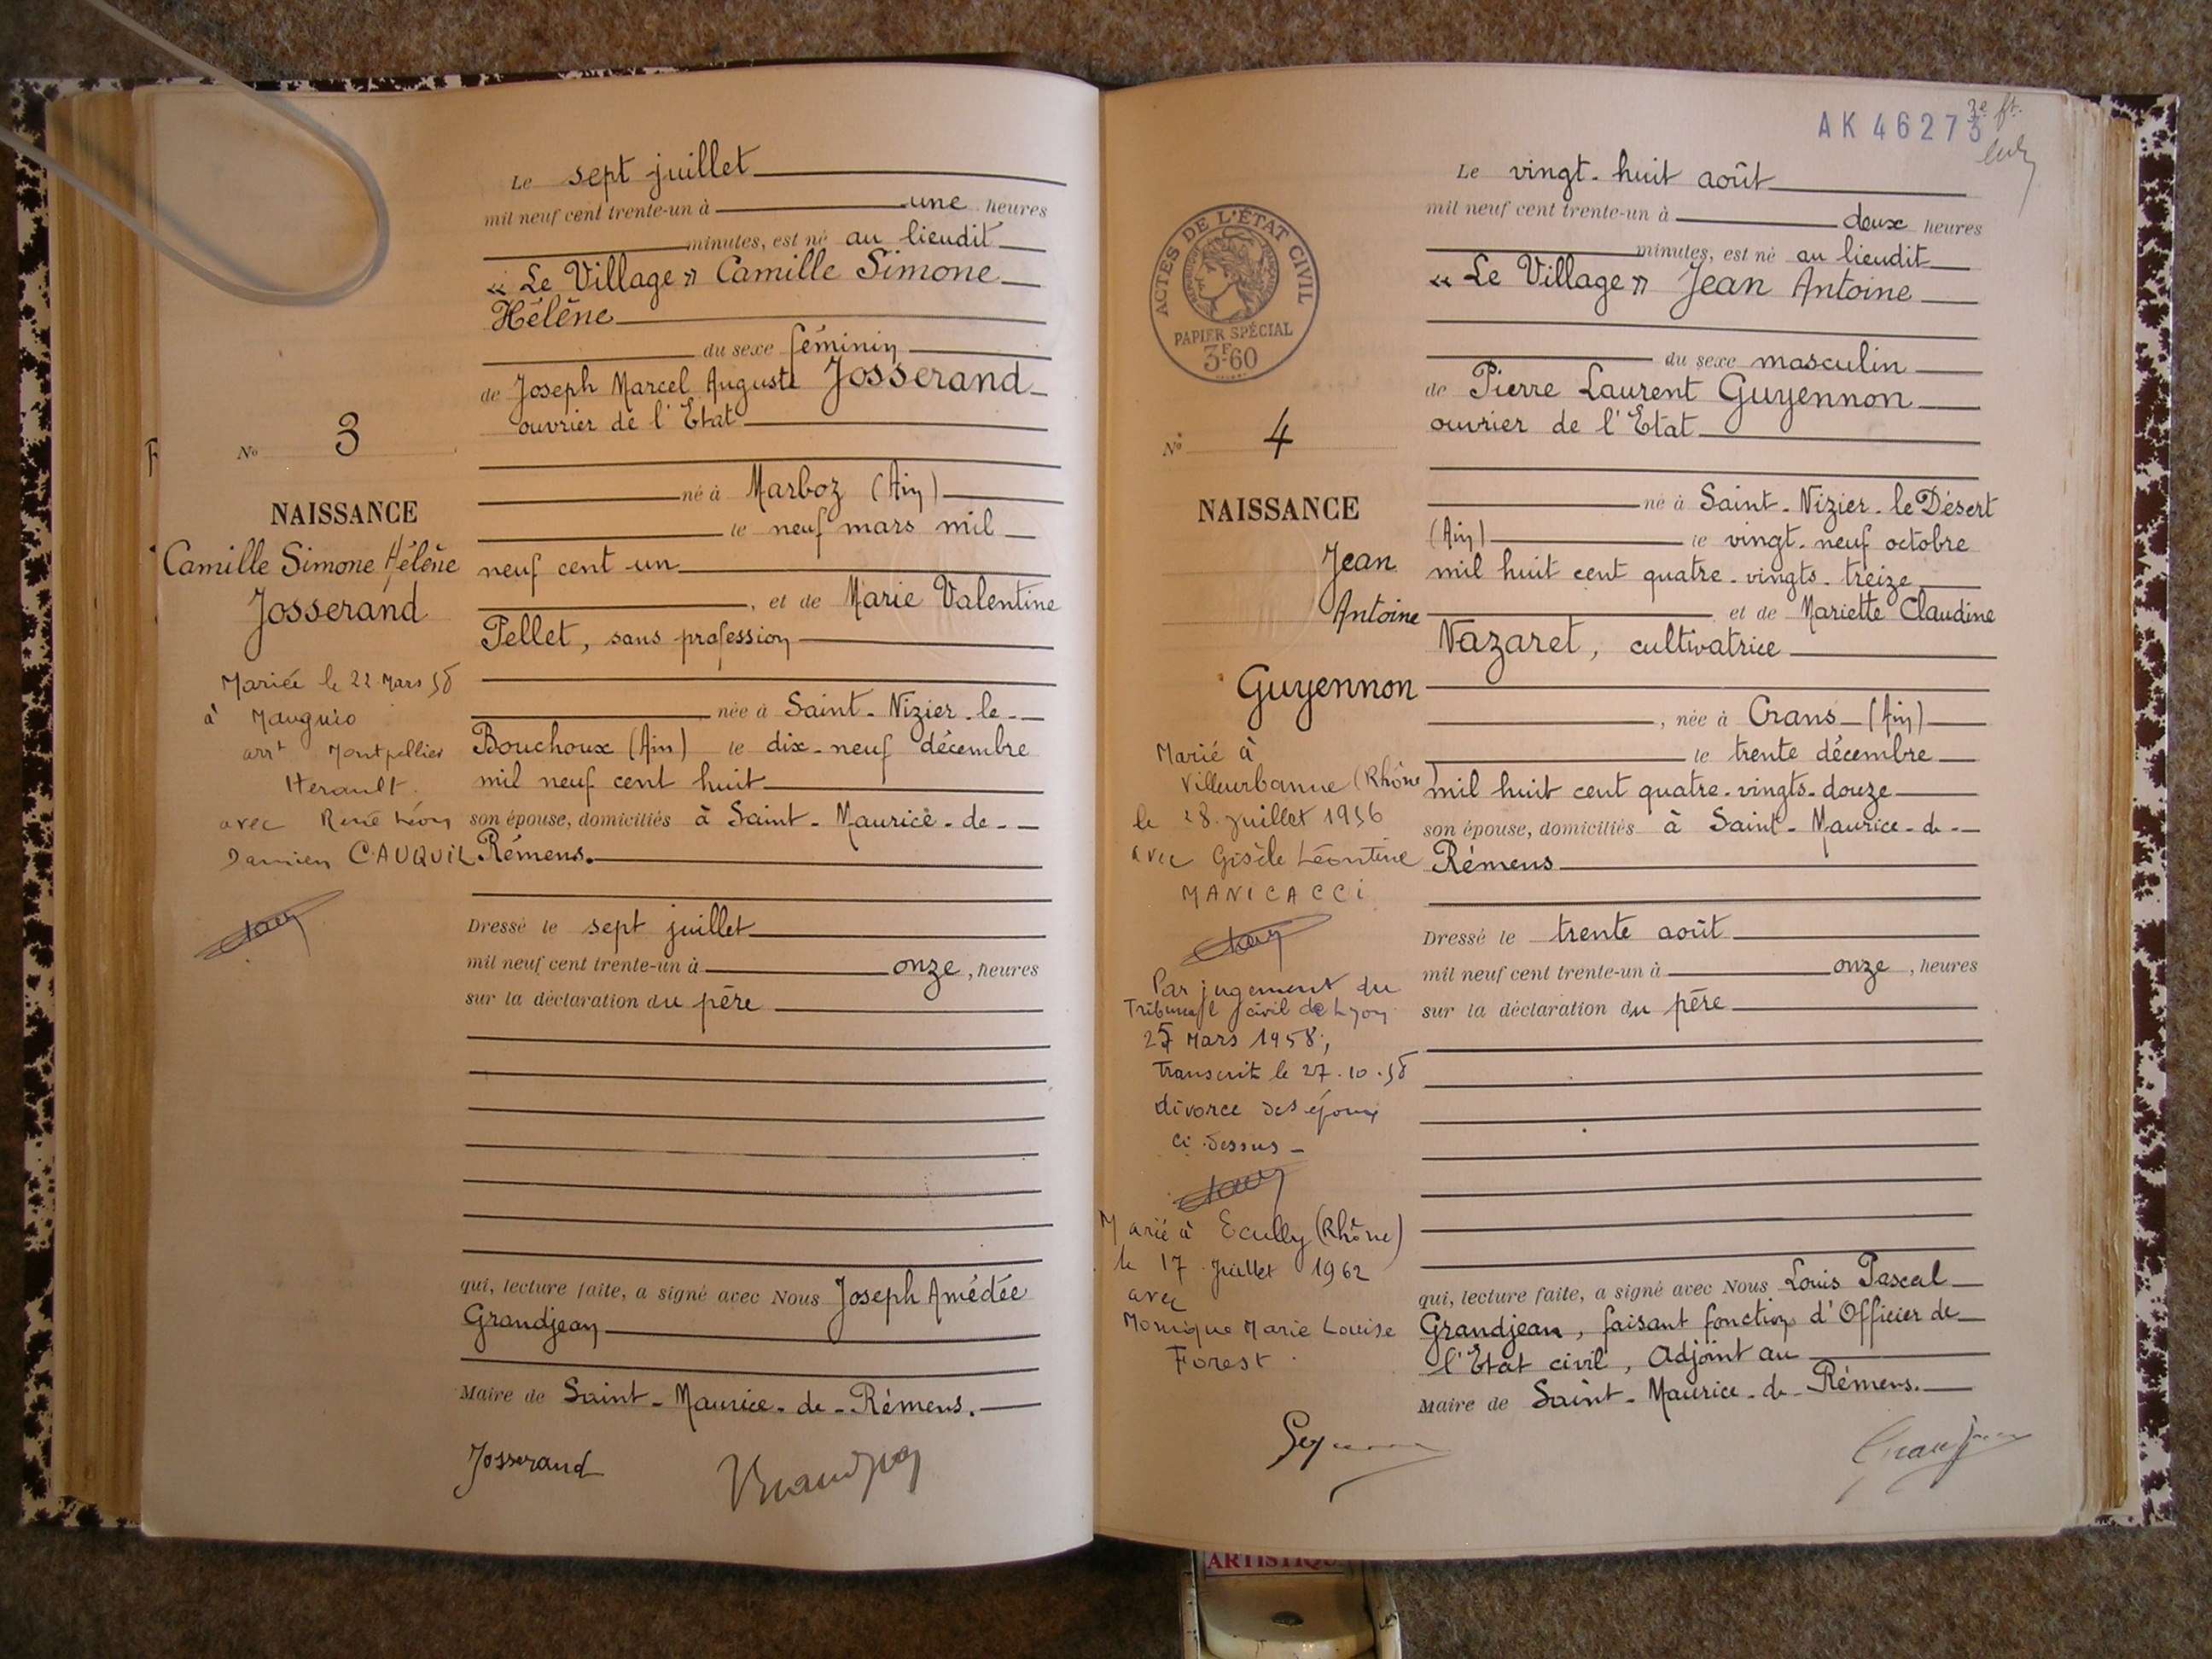 Le sept juillet
mil neuf cent trente-un à une heures
minutes, est né au lieudit
« Le Village » Camille Simone
Hélène
du sexe féminin
de Joseph Marcel Auguste Josserand
ouvrier de l'Etat
né à Marboz (Ain)
le neuf mars mil
neuf cent un
, et de Marie Valentine
Pellet, sans profession
née à Saint-Nizier-le-
Bouchoux (Ain) le dix-neuf décembre
mil neuf cent huit
son épouse, domiciliés à Saint-Maurice-de-
Rémens.
Dressé le sept juillet
mil neuf cent trente-un à onze, heures
sur la déclaration du père
qui, lecture faite, a signé avec Nous Joseph Amédée
Grandjean
Maire de Saint-Maurice-de-Rémens.
Josserand
No 3
NAISSANCE
Camille Simone Hélène
Josserand
Mariée le 22 Mars 58
à Mauguio
arrt Montpellier
Herault.
avec René Léon
Damien CAUQUIL
AK 46273
3e ft.
Le vingt-huit août
mil neuf cent trente-un à deux heures
minutes, est né au lieudit
« Le Village » Jean Antoine
du sexe masculin
de Pierre Laurent Guyennon
ouvrier de l'Etat
né à Saint-Nizier-le Désert
(Ain) le vingt-neuf octobre
mil huit cent quatre-vingts-treize
et de Mariette Claudine
Nazaret, cultivatrice
, née à Crans (Ain)
le trente décembre
mil huit cent quatre-vingts-douze
son épouse, domiciliés à Saint-Maurice-de-
Rémens
Dressé le trente août
mil neuf cent trente-un à onze, heures
sur la déclaration du père
qui, lecture faite, a signé avec Nous Louis Pascal
Grandjean, faisant fonction d'Officier de
l'Etat civil, Adjoint au
Maire de Saint-Maurice-de-Rémens.
ACTES DE L'ÉTAT CIVIL
PAPIER SPÉCIAL
3F60
No 4
NAISSANCE
Jean
Antoine
Guyennon
Marié à
Villeurbanne (Rhône)
le 28 juillet 1956
avec Gisèle Léontine
MANICACCI
Par jugement du
Tribunal civil de Lyon
Mars 1958,
Transcrit le 27.10.58
divorce des époux
ci-dessus
Marié à Ecully (Rhône)
le 17 Juillet 1962
avec
Monique Marie Louise
Forest.
ARTISTIQU